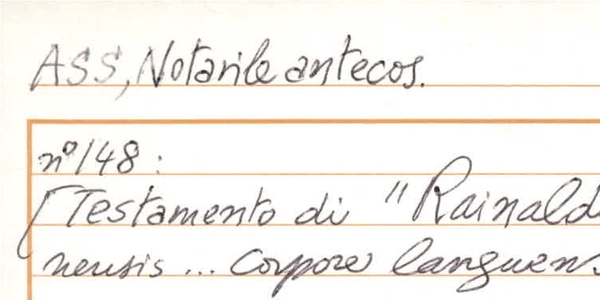 ASS, Notarile antecos.
n° 148:
[Testamento di "Rainald
nensis ... corpore languens